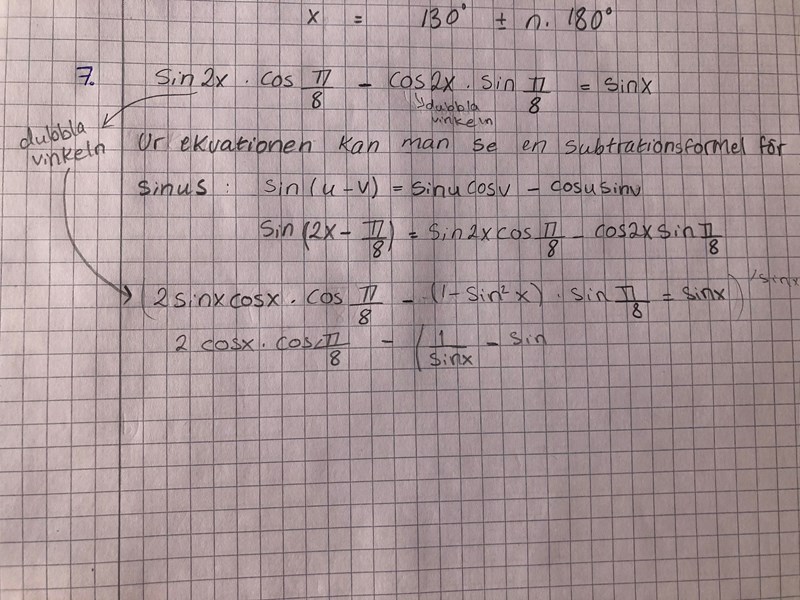 x = 130° ± n. 180°
7. sin 2x . cos π/8 - cos 2x . sin π/8 = sin x
dubbla vinkeln
dubbla
vinkeln
Ur ekvationen kan man se en subtrationsformel för
sinus : sin (u-v) = sinu cosv - cosu sinv
sin (2x - π/8) = sin 2x cos π/8 - cos 2x sin π/8
(2 sinx cosx . cos π/8 - (1 - sin² x) . sin π/8 = sinx) / sinx
2 cosx . cos π/8 - (1/sinx - sin